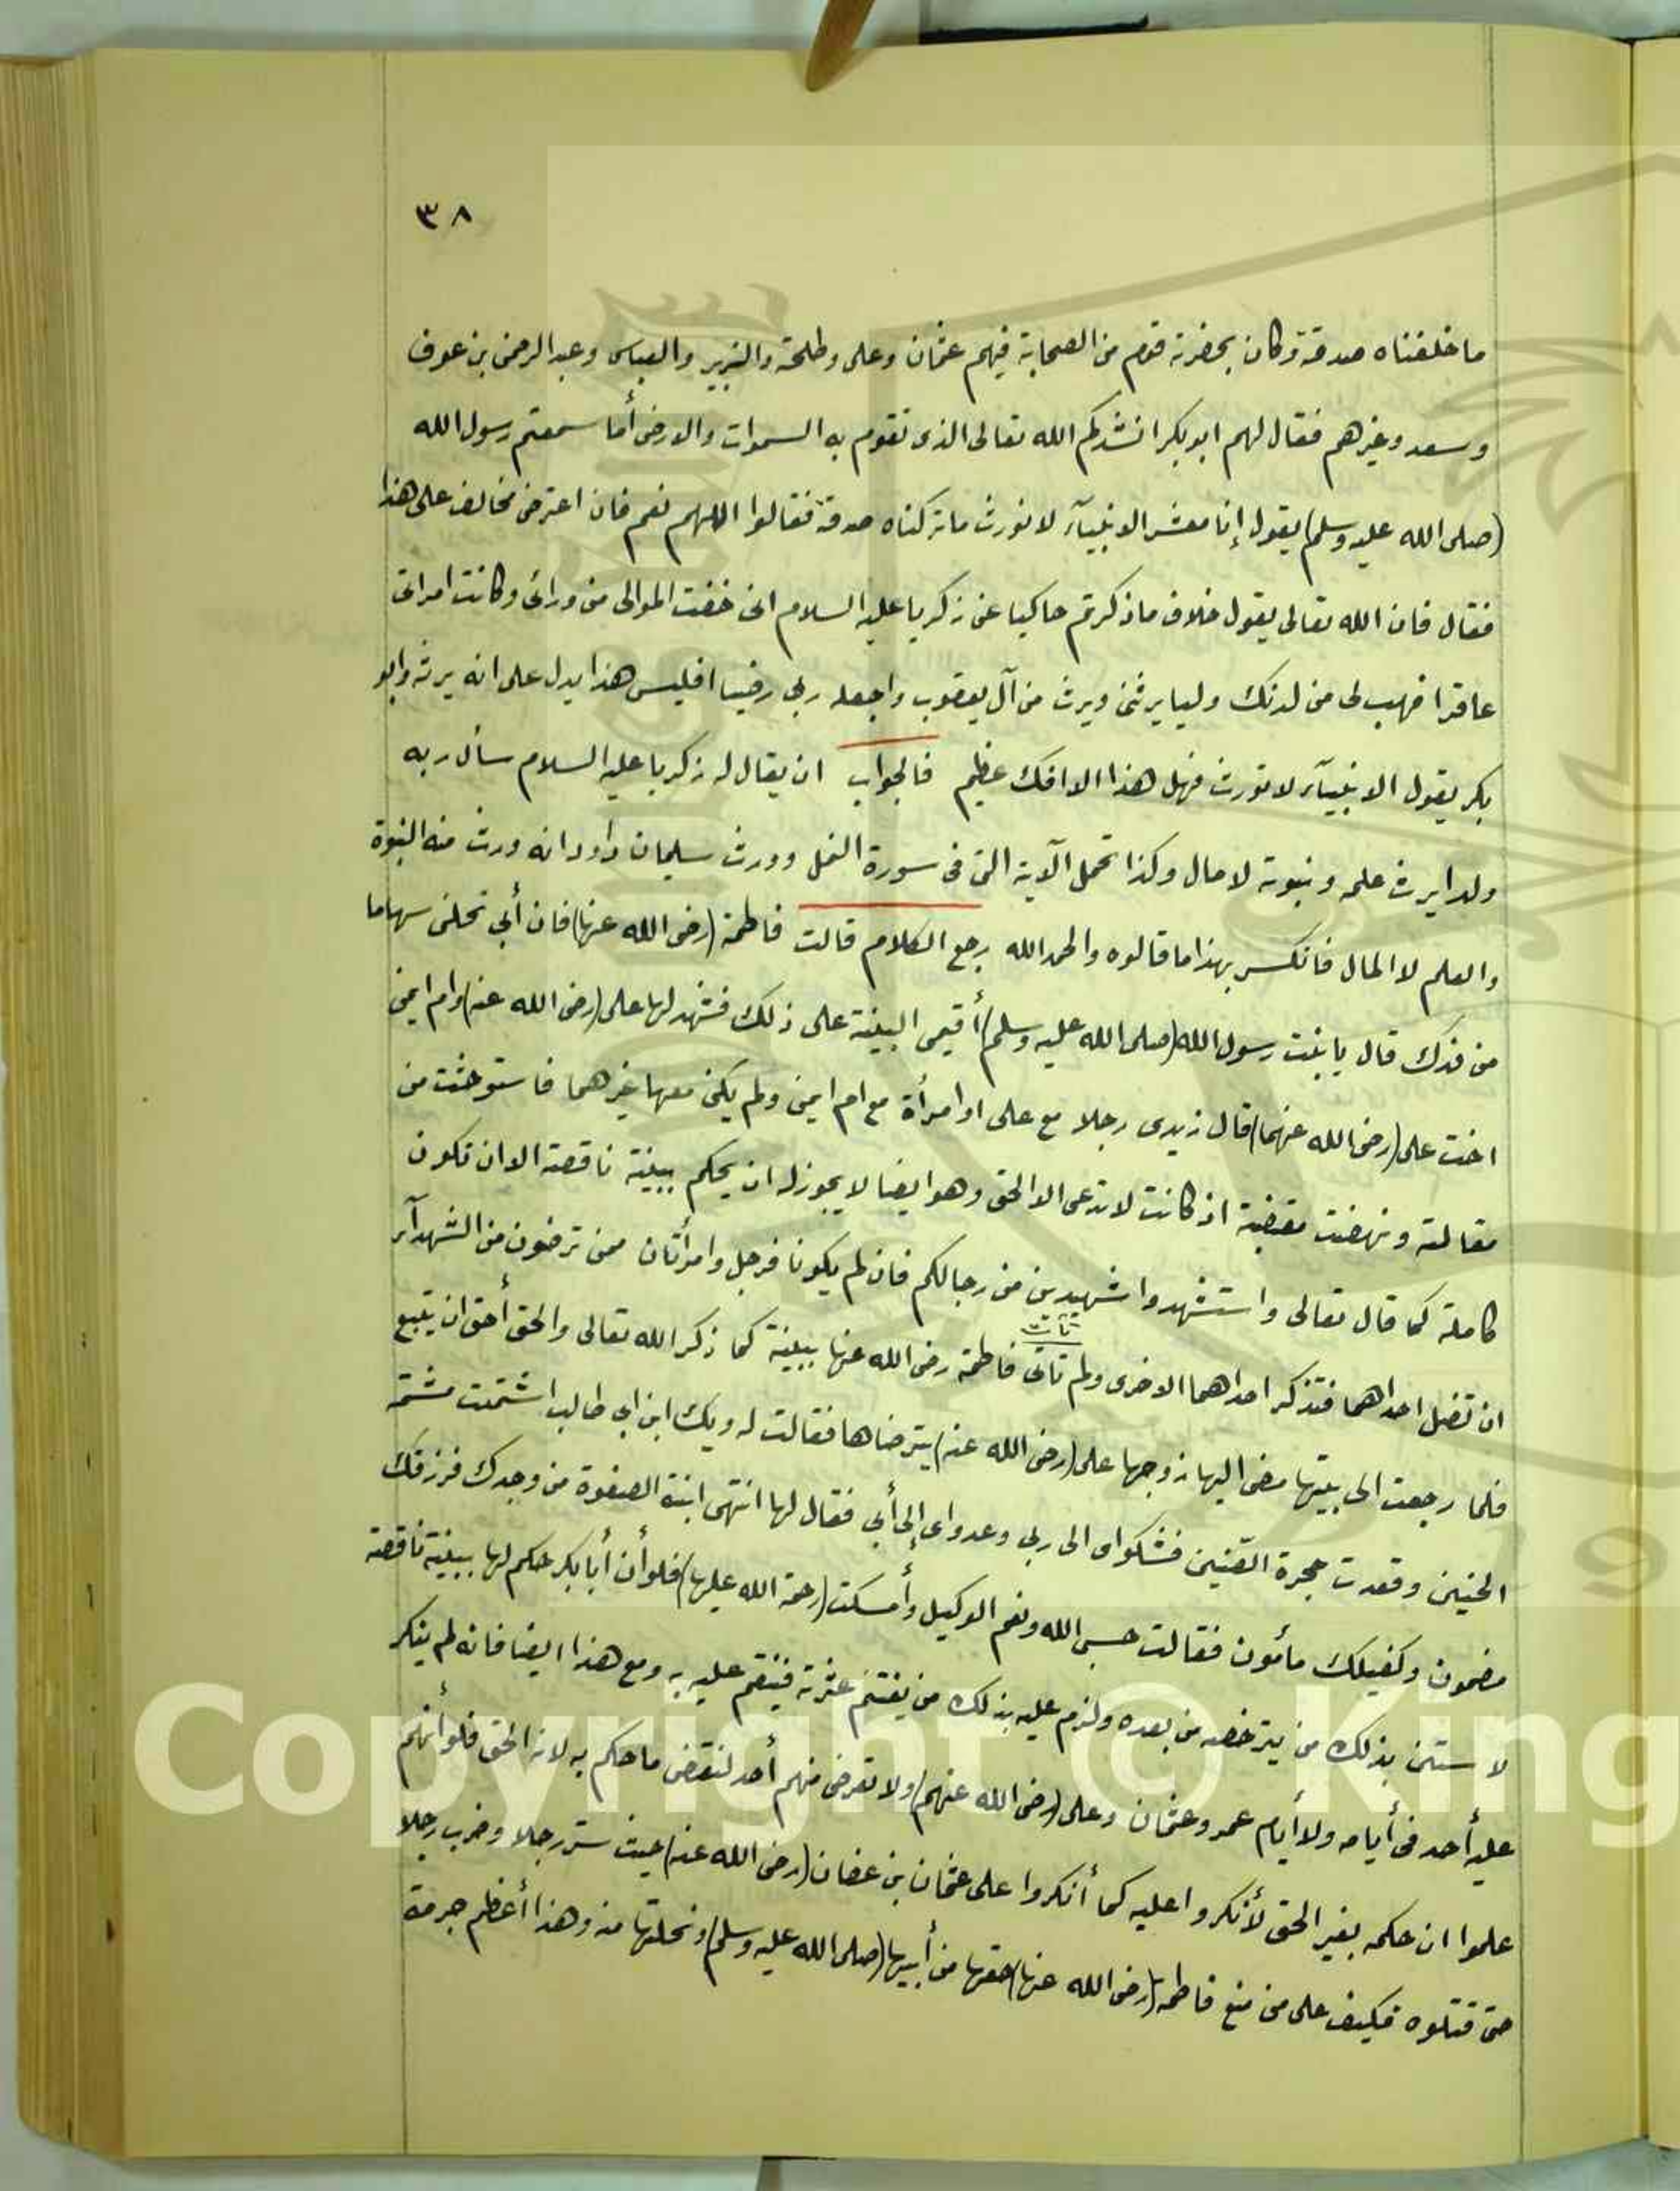 ٣٨
ما خلفناه صدقة وكان بحضرته قوم من الصحابة فيهم عثمان وعلى وطلحة والزبير والعباس وعبد الرحمن بن عوف
وسعد وغيرهم فقال لهم ابو بكر انشدكم الله تعالى الذى تقوم به السموات والارض أما سمعتم رسول الله
(صلى الله عليه وسلم) يقول إنا معشر الانبيآء لا نورث ما تركناه صدقة فقالوا اللهم نعم فان اعترض مخالف على هذا
فقال فان الله تعالى يقول خلاف ما ذكرتم حاكيا عن زكريا عليه السلام انى خفت الموالى من ورائى وكانت امراتى
عاقرا فهب لى من لدنك وليا يرثنى ويرث من آل يعقوب واجعله ربى رضيا افليس هذا يدل على انه يرثه وابو
بكر يقول الانبيآء لا تورث فهل هذا الا افك عظيم فالجواب ان يقال له زكريا عليه السلام سأل ربه
ولدا يرث علمه ونبوته لا مال وكذا تحمل الآية التى فى سورة النمل وورث سليمان داود انه ورث منه النبوة
والعلم لا المال فانكسر بهذا ما قالوه والحمد الله رجع الكلام قالت فاطمة (رضى الله عنها) فان أبي نحلنى سهاما
من فدك قال يا بنت رسول الله (صلى الله عليه وسلم) أقيمى البينة على ذلك فشهد لها على (رضى الله عنه) وام ايمن
اخت على (رضى الله عنهما) قال زيدى رجلا مع على او امرأة مع ام ايمن ولم يكن معها غيرهما فاستوحشت من
مقالته ونهضت مغضبة اذ كانت لا تدعى الا الحق وهو ايضا لا يجوز له ان يحكم ببينة ناقصة الا ان تكون
كاملة كما قال تعالى واستشهدوا شهيدين من رجالكم فان لم يكونا فرجل وامرأتان ممن ترضون من الشهدآء
تأت
ان تضل احداهما فتذكر احداهما الاخرى ولم تاتى فاطمة رضى الله عنها ببينة كما ذكر الله تعالى والحق أحق ان يتبع
فلما رجعت الى بيتها مضى اليها زوجها على (رضى الله عنه) يترضاها فقالت له ويك ابن ابى طالب اشتمت مشتمة
الجنين وقعدت حجرة الضنين فشكواى الى ربى وعدواى إلى أبي فقال لها انتهى ابنة الصفوة من وجدك فرزقك
مضمون وكفيلك مأمون فقالت حسبى الله ونعم الوكيل وأمسكت (رحمة الله عليها) فلو أن أبا بكر حكم لها ببينة ناقصة
لاستن بذلك من يترخص من بعده ولزم عليه بذلك من يغتنم عثرته فينقم عليه به ومع هذا ايضا فانه لم ينكر
عليه أحد فى أيامه ولا أيام عمر وعثمان وعلى (رضى الله عنهم) ولا تعرض منهم أحد لنقض ما حكم به لانه الحق فلو أنهم
علموا ان حكمه بغير الحق لأنكروا عليه كما أنكروا على عثمان بن عفان (رضى الله عنه) حيث ستر رجلا وضرب رجلا
حتى قتلوه فكيف على من منع فاطمة (رضى الله عنها) حقها من أبيها (صلى الله عليه وسلم) ونحلتها منه وهذا أعظم جرمة
Copyright © King